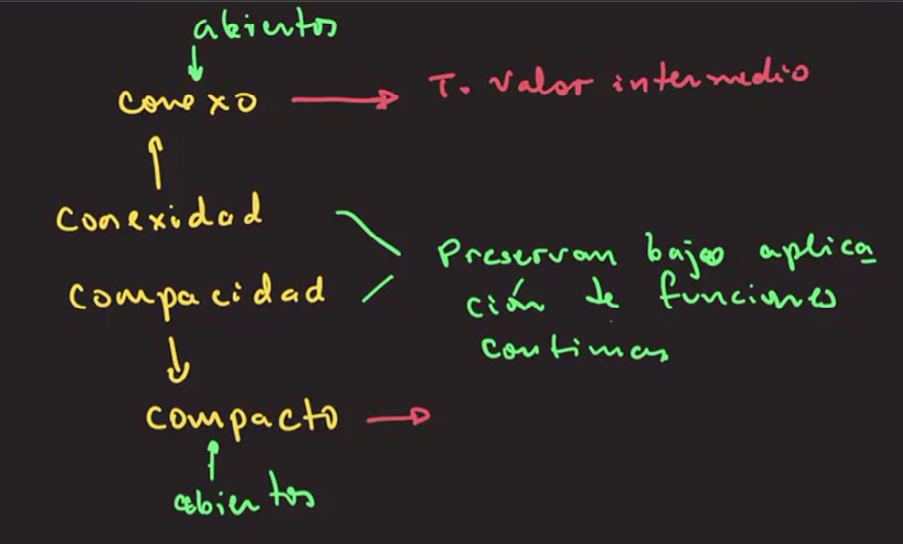 abiertos
conexo → T. Valor intermedio
Conexidad
Compacidad
Preservan bajo aplica
ción de funciones
continuas
compacto →
abiertos